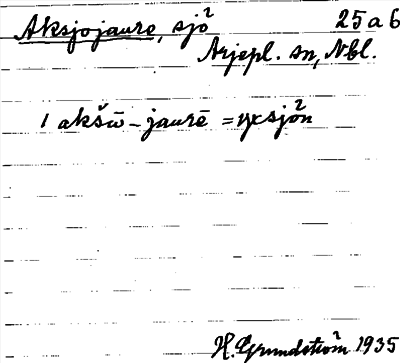 Aksjojaure, sjö 25 a b
Arjepl. sn, Nbl.
1 akšω̄-jaurē = yxsjön
H. Grundström 1935